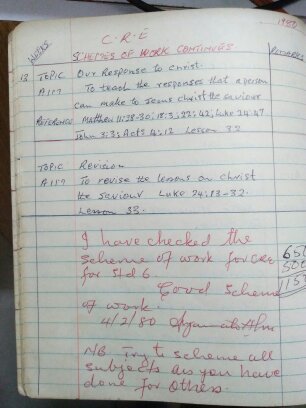 1980
C.R.E
WEEKS
SCHEMES OF WORK CONTINUES
REMARKS
13 TOPIC Our Response to Christ.
AIM To teach the responses that a person
can make to Jesus Christ the saviour
REFERENCE Matthew 11:28-30, 18:3, 22:42, Luke 24:47
John 3:3; Acts 4:12 Lesson 32
TOPIC Revision
AIM To revise the lessons on Christ
the saviour Luke 24:13-32.
Lesson 33.
I have checked the
scheme of work for CRE
for std 6.
Good scheme
of work.
4/2/80
N/B. Try to scheme all
subjects as you have
done for others.
650
500
1150